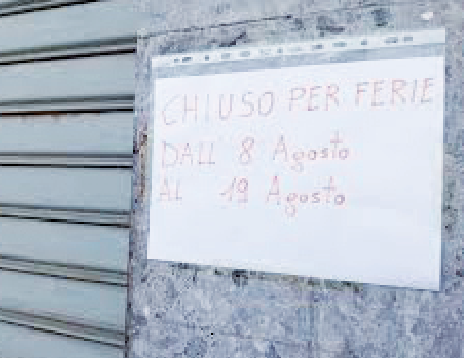 CHIUSO PER FERIE
DALL 8 Agosto
AL 19 Agosto